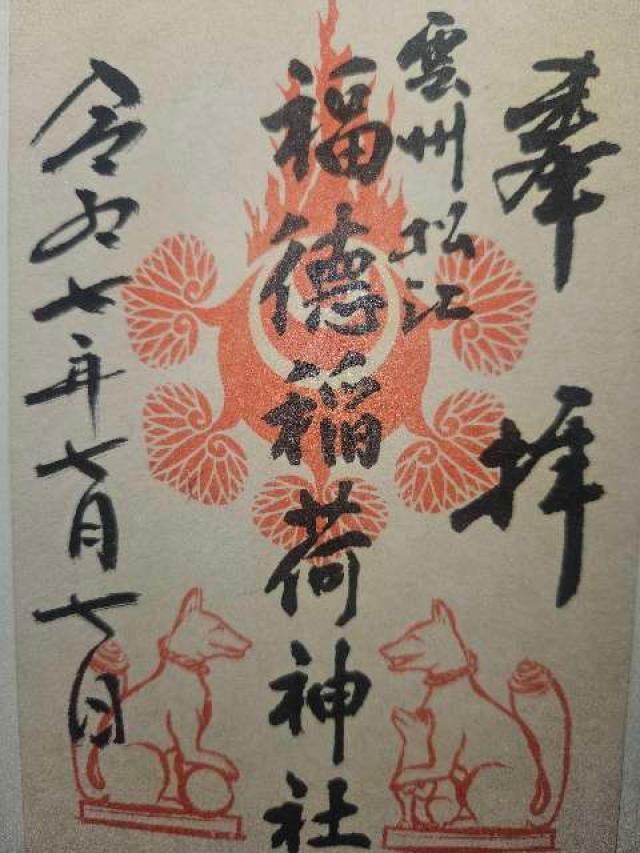 奉拝
雲州松江
福徳稲荷神社
令和七年七月七日